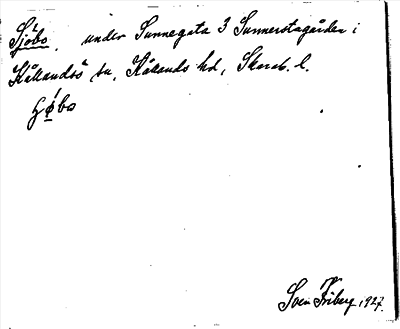 Sjöbo, under Sunnegata 3 Sunnerstagården i
Kållandsö sn, Kållands hd, Skarab. l.
Sven Friberg, 1927.